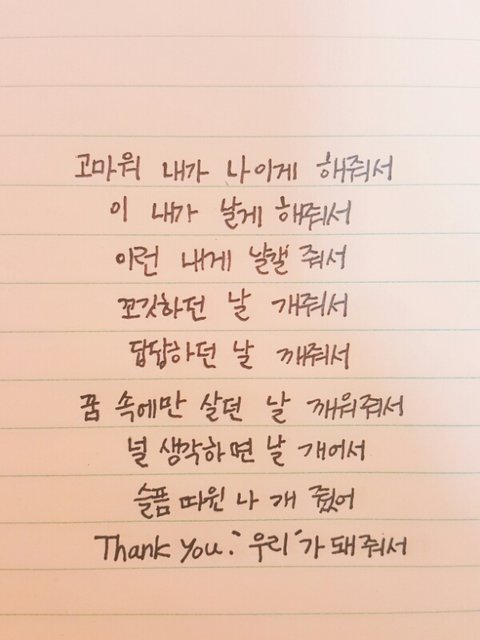 고마워 내가 나이게 해줘서
이 내가 날게 해줘서
이런 내게 날갤 줘서
꼬깃하던 날 개줘서
답답하던 날 깨줘서
꿈 속에만 살던 날 깨워줘서
널 생각하면 날 개어서
슬픔 따윈 나 개 줬어
Thank you. '우리'가 돼 줘서